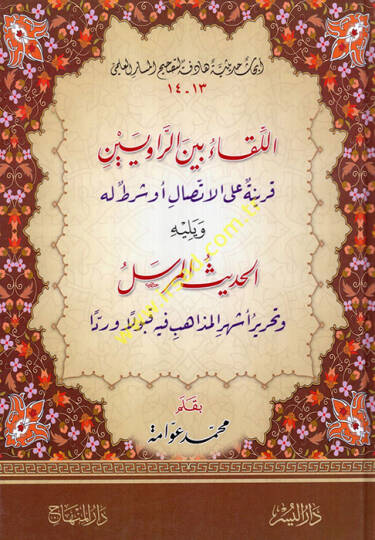 أبحاث حديثية هادفة لتصحيح المسار العلمي
١٣ - ١٤
اللقاء بين الراويين
قرينة على الاتصال أو شرط له
ويليه
الحديث المرسل
وتحرير أشهر المذاهب فيه قبولا وردا
بقلم
محمد عوامة
دار اليسر
دار المنهاج